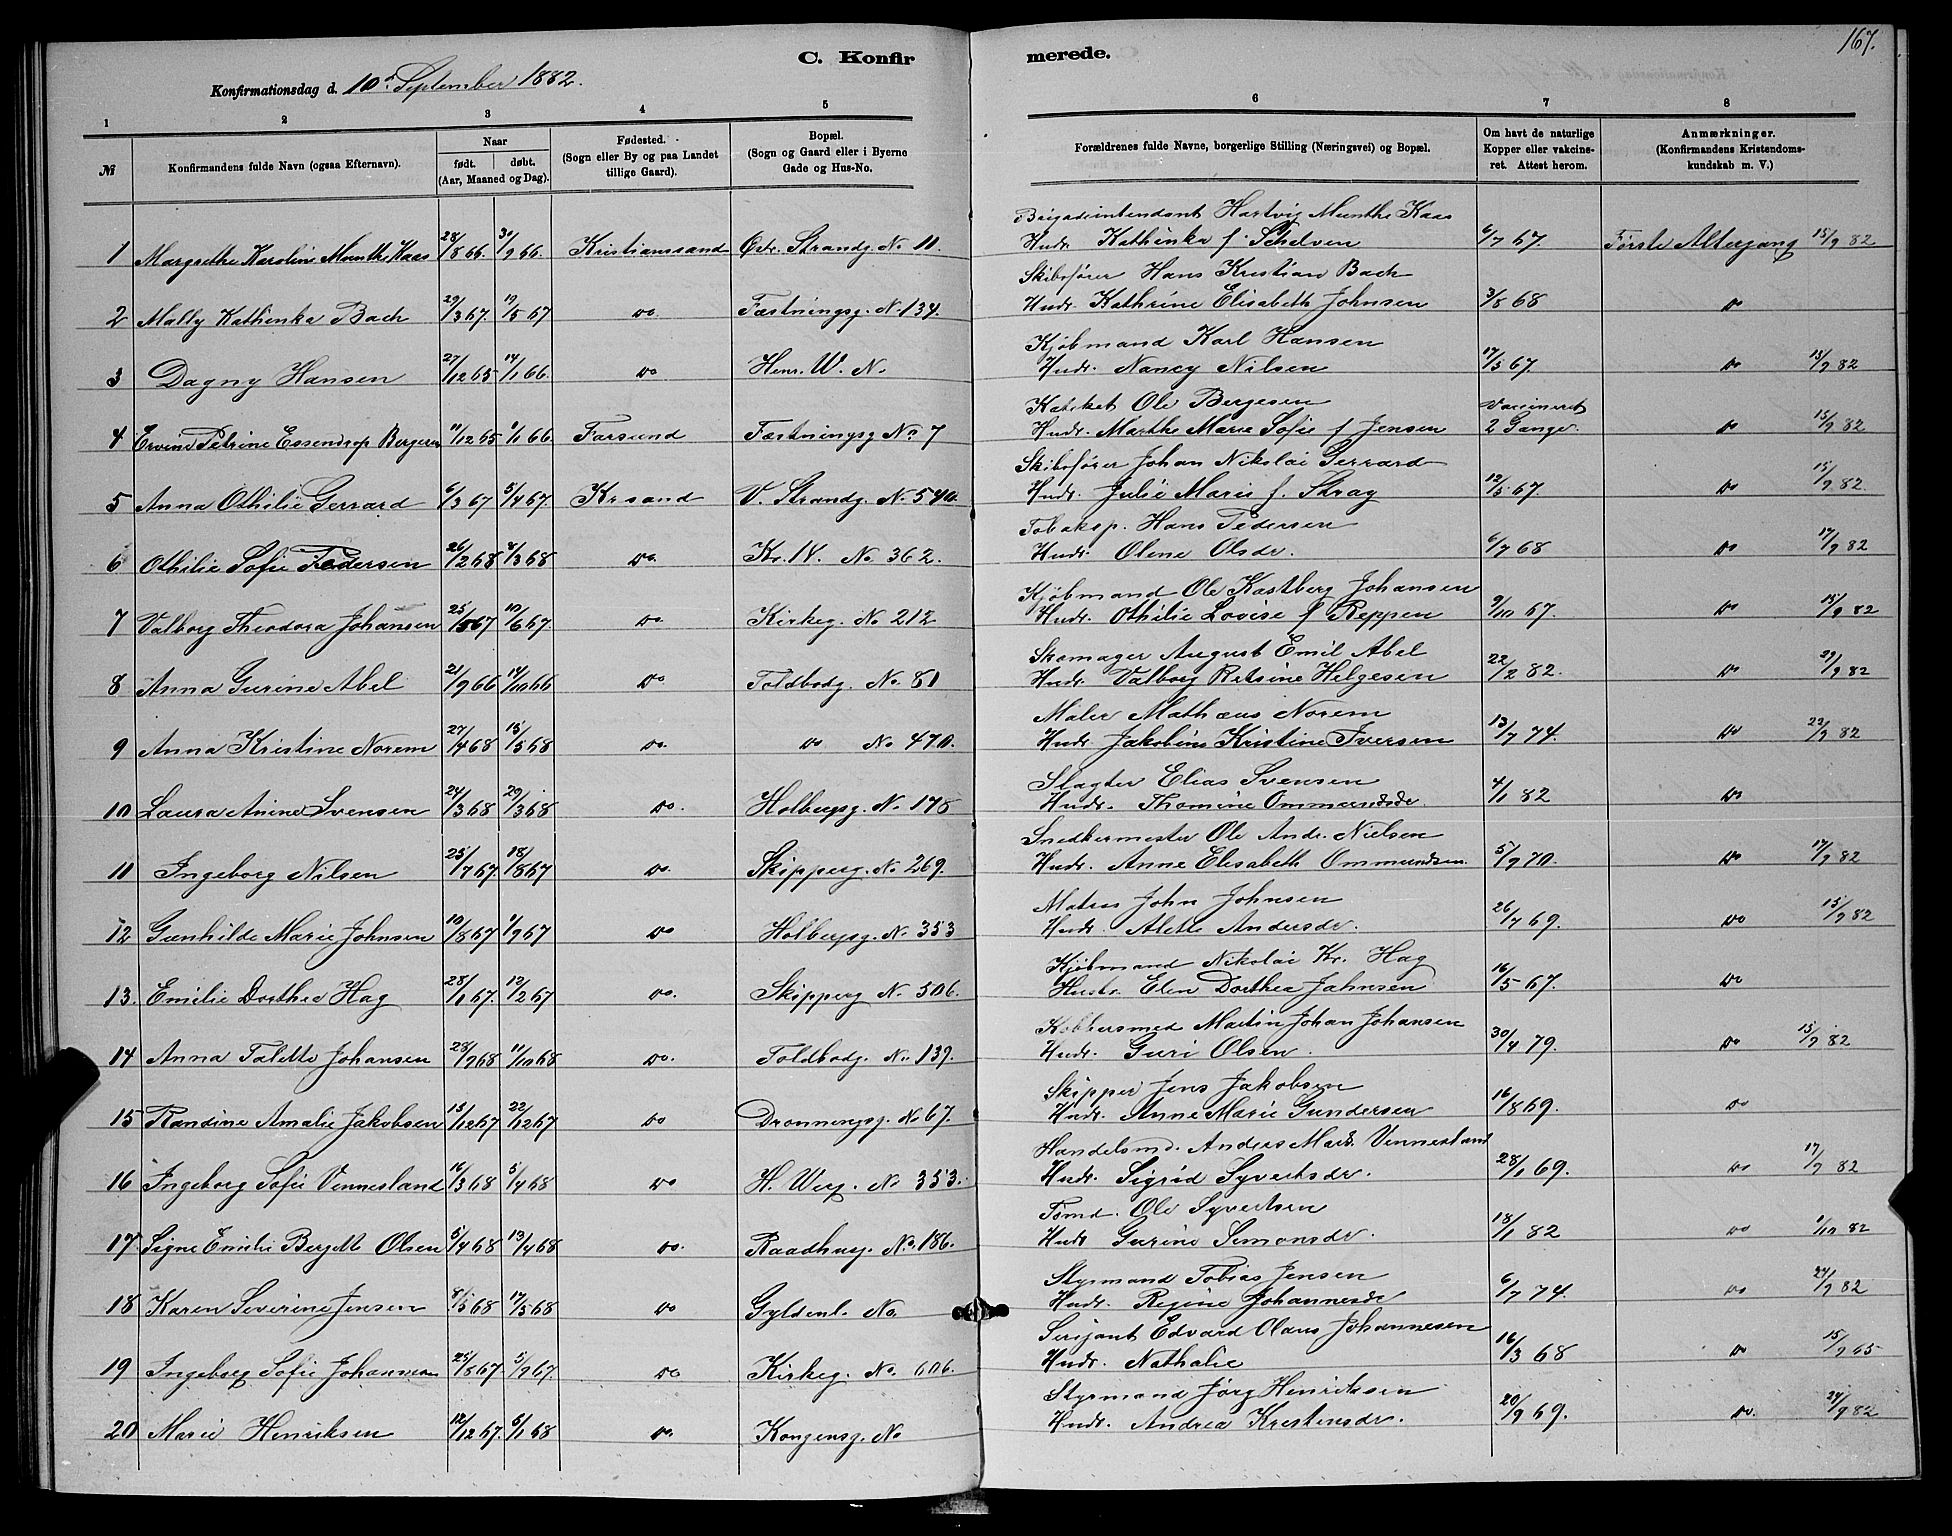 167.
C. Konfirmerede.
Konfirmationsdag d. 10de September 1882.
1 2 3 4 5 6 7 8
№ Konfirmandens fulde Navn (ogsaa Efternavn). Naar født. døbt. (Aar, Maaned og Dag). Fødested. (Sogn eller By og paa Landet tillige Gaard). Bopæl. (Sogn og Gaard eller i Byerne Gade og Hus-No. Forældrenes fulde Navne, borgerlige Stilling (Næringsvei) og Bopæl. Om havt de naturlige Kopper eller vakcineret. Attest herom. Anmærkninger. (Konfirmandens Kristendomskundskab m. V.)
Brigadeintendant Hartvig Munthe Kaas
1 Margrethe Karoline Munthe Kaas 28/8 66. 30/9 66. Kristianssand Østr. Strandg. No 11. Hudr. Kathinka f. Schelven 6/7 67. Første Altergang 15/9 82
Skibsfører Hans Kristian Bach
2 Mally Kathinka Bach 29/3 67. 19/5 67 Do. Fæstningsg. No. 134. Hudr. Kathrine Elisabeth Johnsen 3/8 68 Do
Kjøbmand Karl Hansen
3 Dagny Hansen 27/12 65 14/1 66. Do Henr. W. N. Hudr. Nancy Nilsen 17/5 67. Do 15/9 82
Katiket Ole Bergesen Vaccineret
4 Ervine Petrine Essendrop Bergesen 11/12 65 1/1 66. Farsund Fæstningsg No. 7 Hudr. Marthe Marie Sofie f Jensen 2 Gange. Do 15/9 82
Skibsfører Johan Nikolai Gerrard
5 Anna Othilie Gerrard 6/3 67 5/4 67. Kr.sand V. Strandg. No. 540. Hudr. Julie Marie f. Stray 12/5 67. Do 15/9 82.
Tobaksp. Hans Pedersen
6 Othilie Sofie Pedersen 26/2 68 8/3 68 Do. Kr. IV. No 362. Hudr. Olene Olsdr. 6/7 68 Do 17/9 82
Kjøbmand Ole Kastberg Johansen
7 Valborg Theodora Johansen 25/5 67 10/6 67. Do Kirkeg. No 212 Hudr. Othilie Lovise f Reppen 9/10 67. Do 15/9 82
Skomager August Emil Abel
8 Anna Gurine Abel 21/9 66 14/10 66 Do Toldbodg. No. 81 Hudr. Valborg Retsine Helgesen 22/2 82. Do 29/9 82
Maler Mathæus Norem
9 Anna Kristine Norem 27/4 68 15/5 68 Do. Do No 470. Hudr. Jakobine Kristine Iversen 13/7 74. Do 22/9 82
Slagter Elias Svensen
10 Laura Anine Svensen 24/3 68 29/3 68 Do. Holbergsg. No. 178 Hudr. Thomine Ommundsdr. 4/1 82 Do
Snedkermester Ole Andr. Nielsen
11 Ingeborg Nilsen 25/7 67. 18/8 67 Do. Skipperg. No 269. Hudr. Anne Elisabeth Ommundsen. 5/9 70. Do 17/9 82
Matros John Johnsen
12 Gunhilde Marie Johnsen 10/8 67 1/9 67 Do Holbergsg. No. 353 Hudr. Alette Andersdr. 26/7 69. Do 15/9 82
Kjøbmand Nikolai Kr. Hag
13. Emilie Dorthea Hag 28/1 67. 12/2 67 Do. Skipperg No. 306. Hustr. Elen Dorthea Jahnsen 16/5 67. Do
Kobbersmed Martin Johan Johansen
14 Anna Talette Johansen 28/9 68 11/10 68 Do. Toldbodg. No. 139. Hudr. Guri Olsen. 30/4 79. Do 15/9 82
Skipper Jens Jakobsen
15 Randine Amalie Jakobsen 13/12 67 22/12 67 Do Dronningsg. No 67. Hudr. Anne Marie Gundersen 16/8 69. Do
Handelsmd. Anders Mark. Vennesland
16 Ingeborg Sofie Vennesland 16/3 68 5/4 68 Do H. Werg. No 353. Hudr. Sigrid Syvertsdr. 28/1 69. Do 17/9 82
Tømd. Ole Syvertsen
17 Signe Emilie Bergett Olsen 5/4 68 13/4 68 Do. Raadhusg. No. 186. Hudr Gurine Simonsdr. 18/1 82 Do 1/10 82
Styrmand Tobias Jensen
18 Karen Severine Jensen 8/5 68 17/5 68 Do Gyldenl. No. Hudr. Regine Johannesdr 6/7 74. Do 24/9 82
Serisjant Edvard Olaus Johannesen
19 Ingeborg Sofie Johannesen 25/8 67. 5/9 67. Do Kirkeg. No. 606. Hudr. Nathalie 16/3 68 Do 15/9 65
Styrmand Jørg Henriksen
20 Marie Henriksen 12/12 67. 5/1 68 Do. Kongensg. No Hudr. Andrea Kristensdr. 20/9 69. Do. 24/9 82